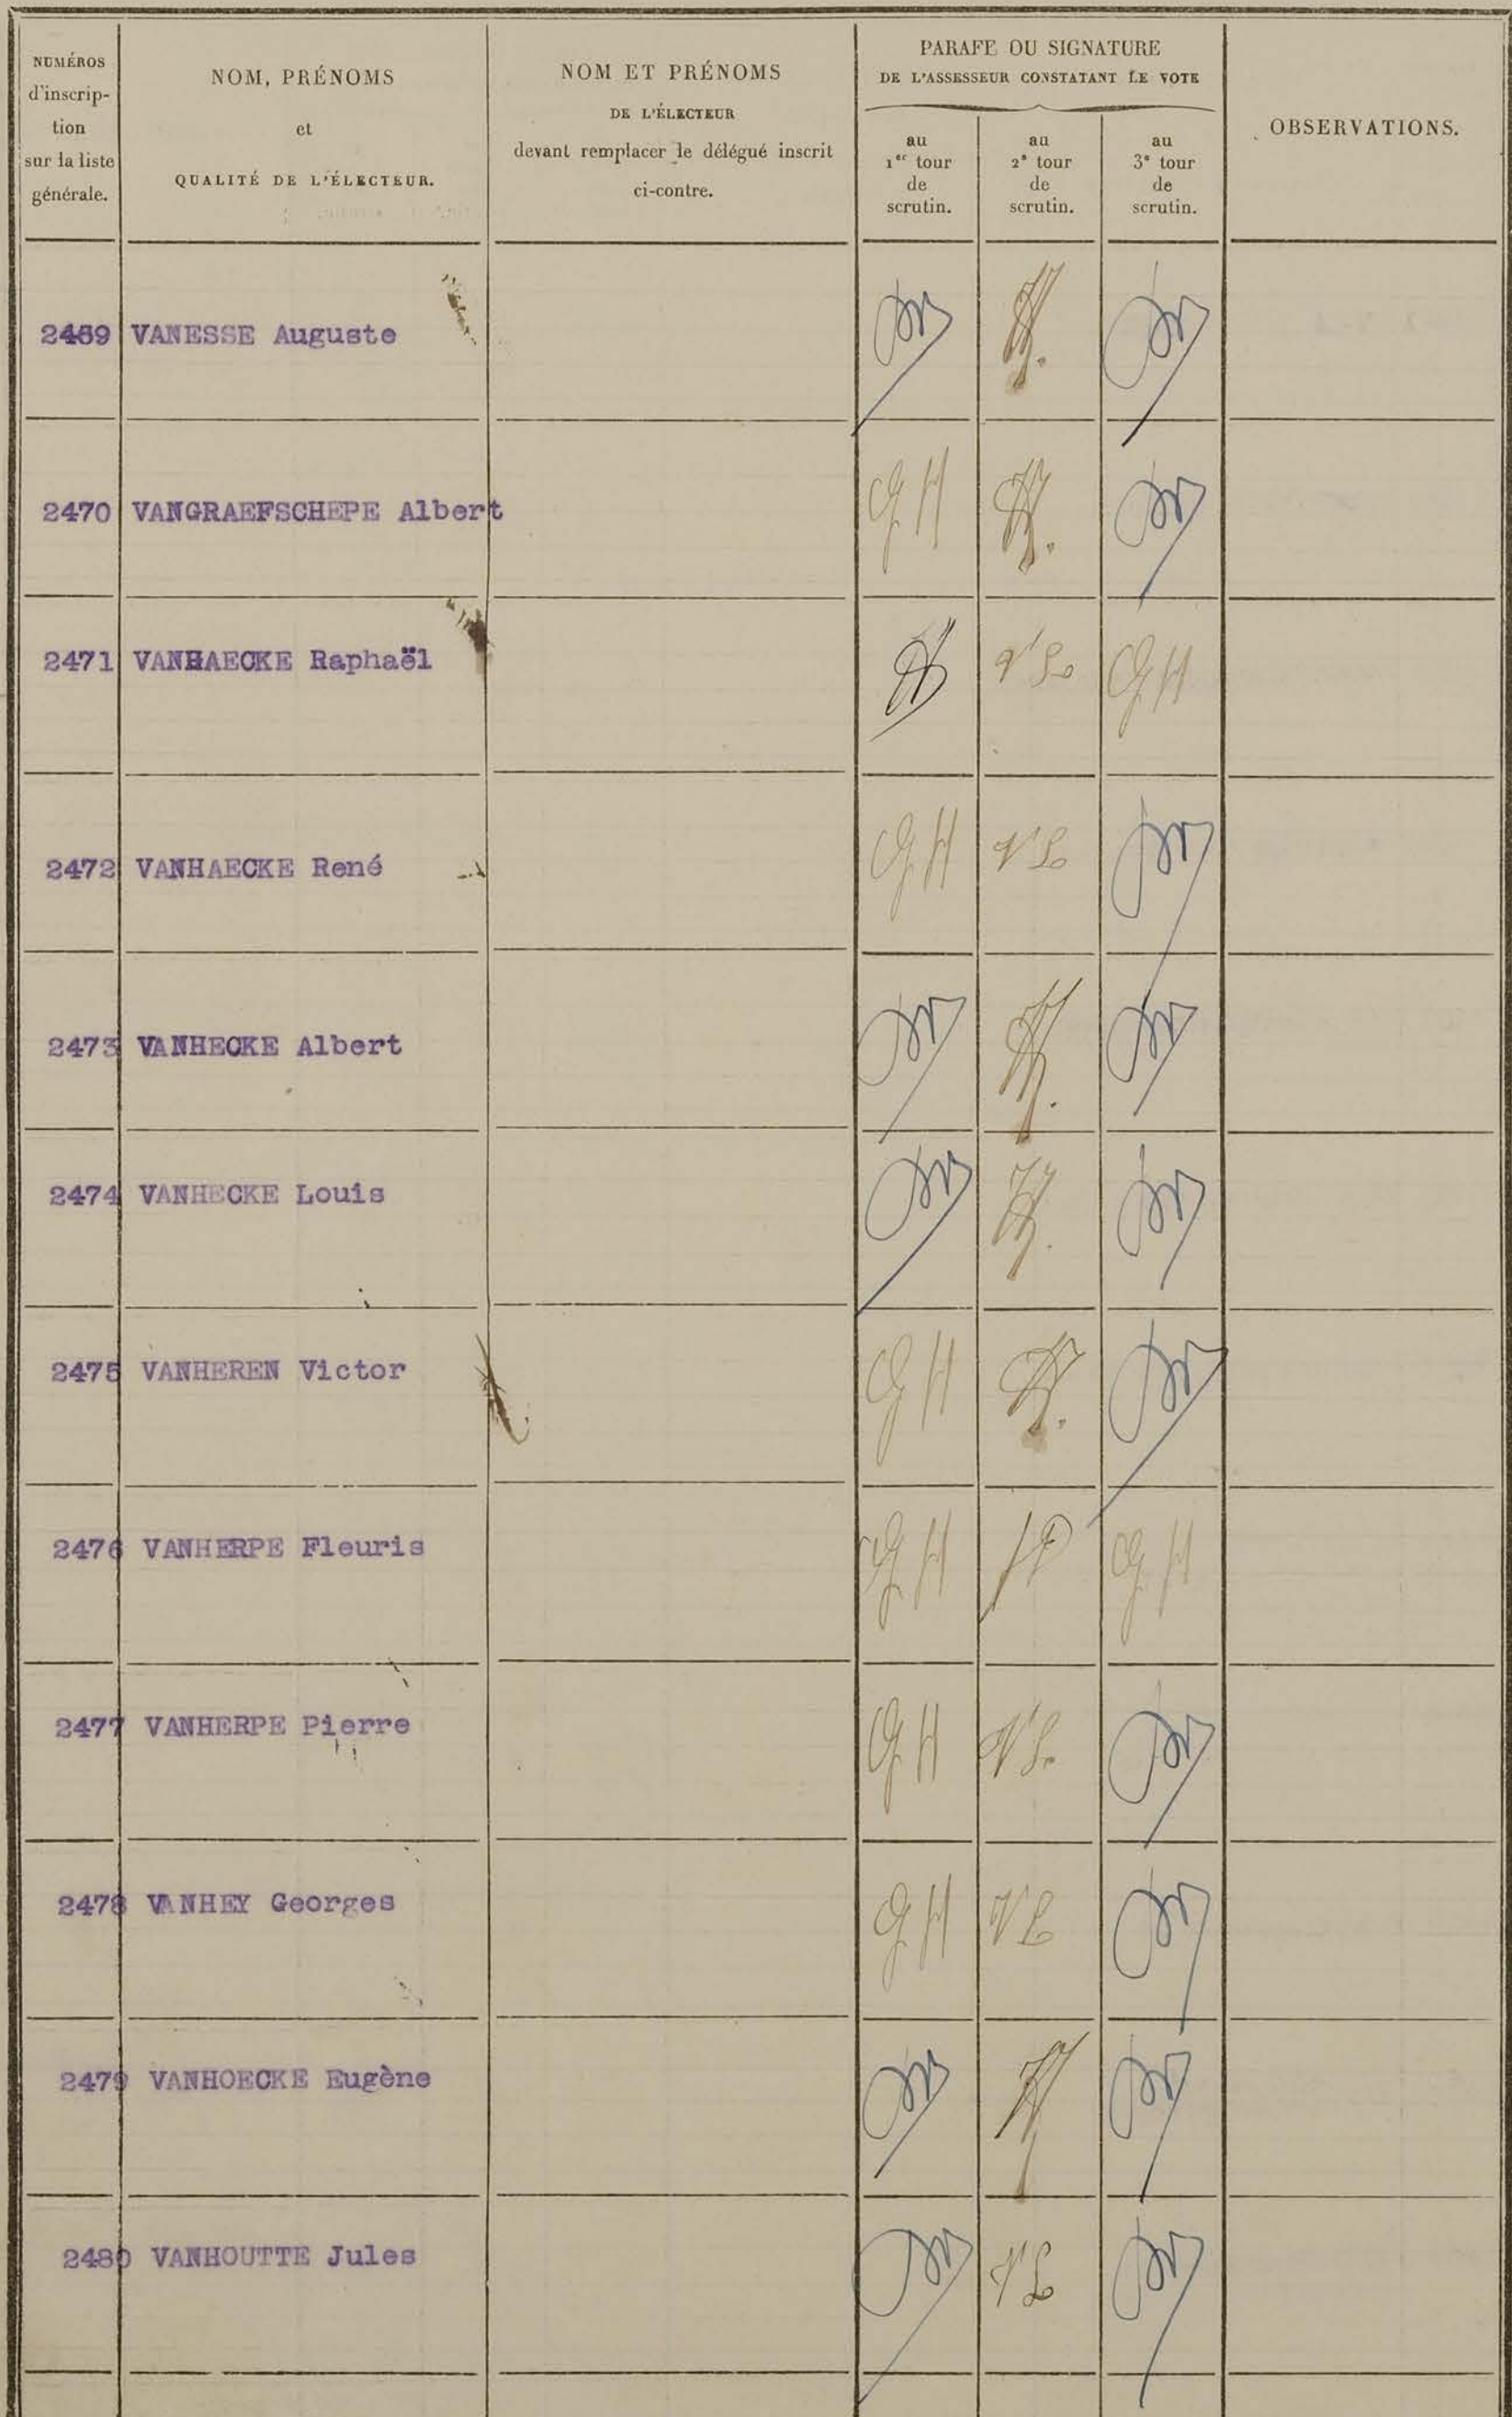 NUMÉROS
d'inscrip-
tion
sur la liste
générale.
NOM, PRÉNOMS
et
QUALITÉ DE L'ÉLECTEUR.
NOM ET PRÉNOMS
DE L'ÉLECTEUR
devant remplacer le délégué inscrit
ci-contre.
PARAFE OU SIGNATURE
DE L'ASSESSEUR CONSTATANT LE VOTE
au
1er tour
de
scrutin.
au
2e tour
de
scrutin.
au
3e tour
de
scrutin.
OBSERVATIONS.
2469 VANESSE Auguste
2470 VANGRAEFSCHEPE Albert GH
2471 VANHAECKE Raphaël VL GH
2472 VANHAECKE René GH VL
2473 VANHECKE Albert
2474 VANHECKE Louis
2475 VANHEREN Victor GH
2476 VANHERPE Fleuris GH GH
2477 VANHERPE Pierre GH VL
2478 VANHEY Georges GH VL
2479 VANHOECKE Eugène
2480 VANHOUTTE Jules VL